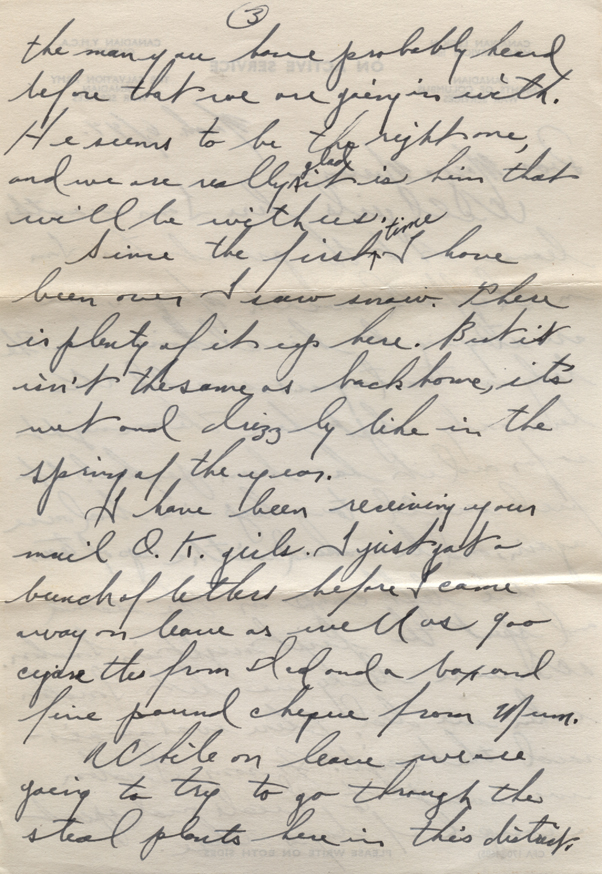 3
the man you have probably heard
before that we are going in with.
He seems to be the right one,
and we are really glad it is him that
will be with us.
Since the first time I have
been over I saw snow. There
is plenty of it up here. But it
isn't the same as back home, it's
wet and drizzly like in the
spring of the year.
I have been receiving your
mail O.K. girls. I just got a
bunch of letters before I came
away on leave as well as 900
cigarettes from Dad and a box and
five pound cheque from Mum.
While on leave we are
going to try to go through the
steal plants here in this district.
ON ACTIVE SERVICE